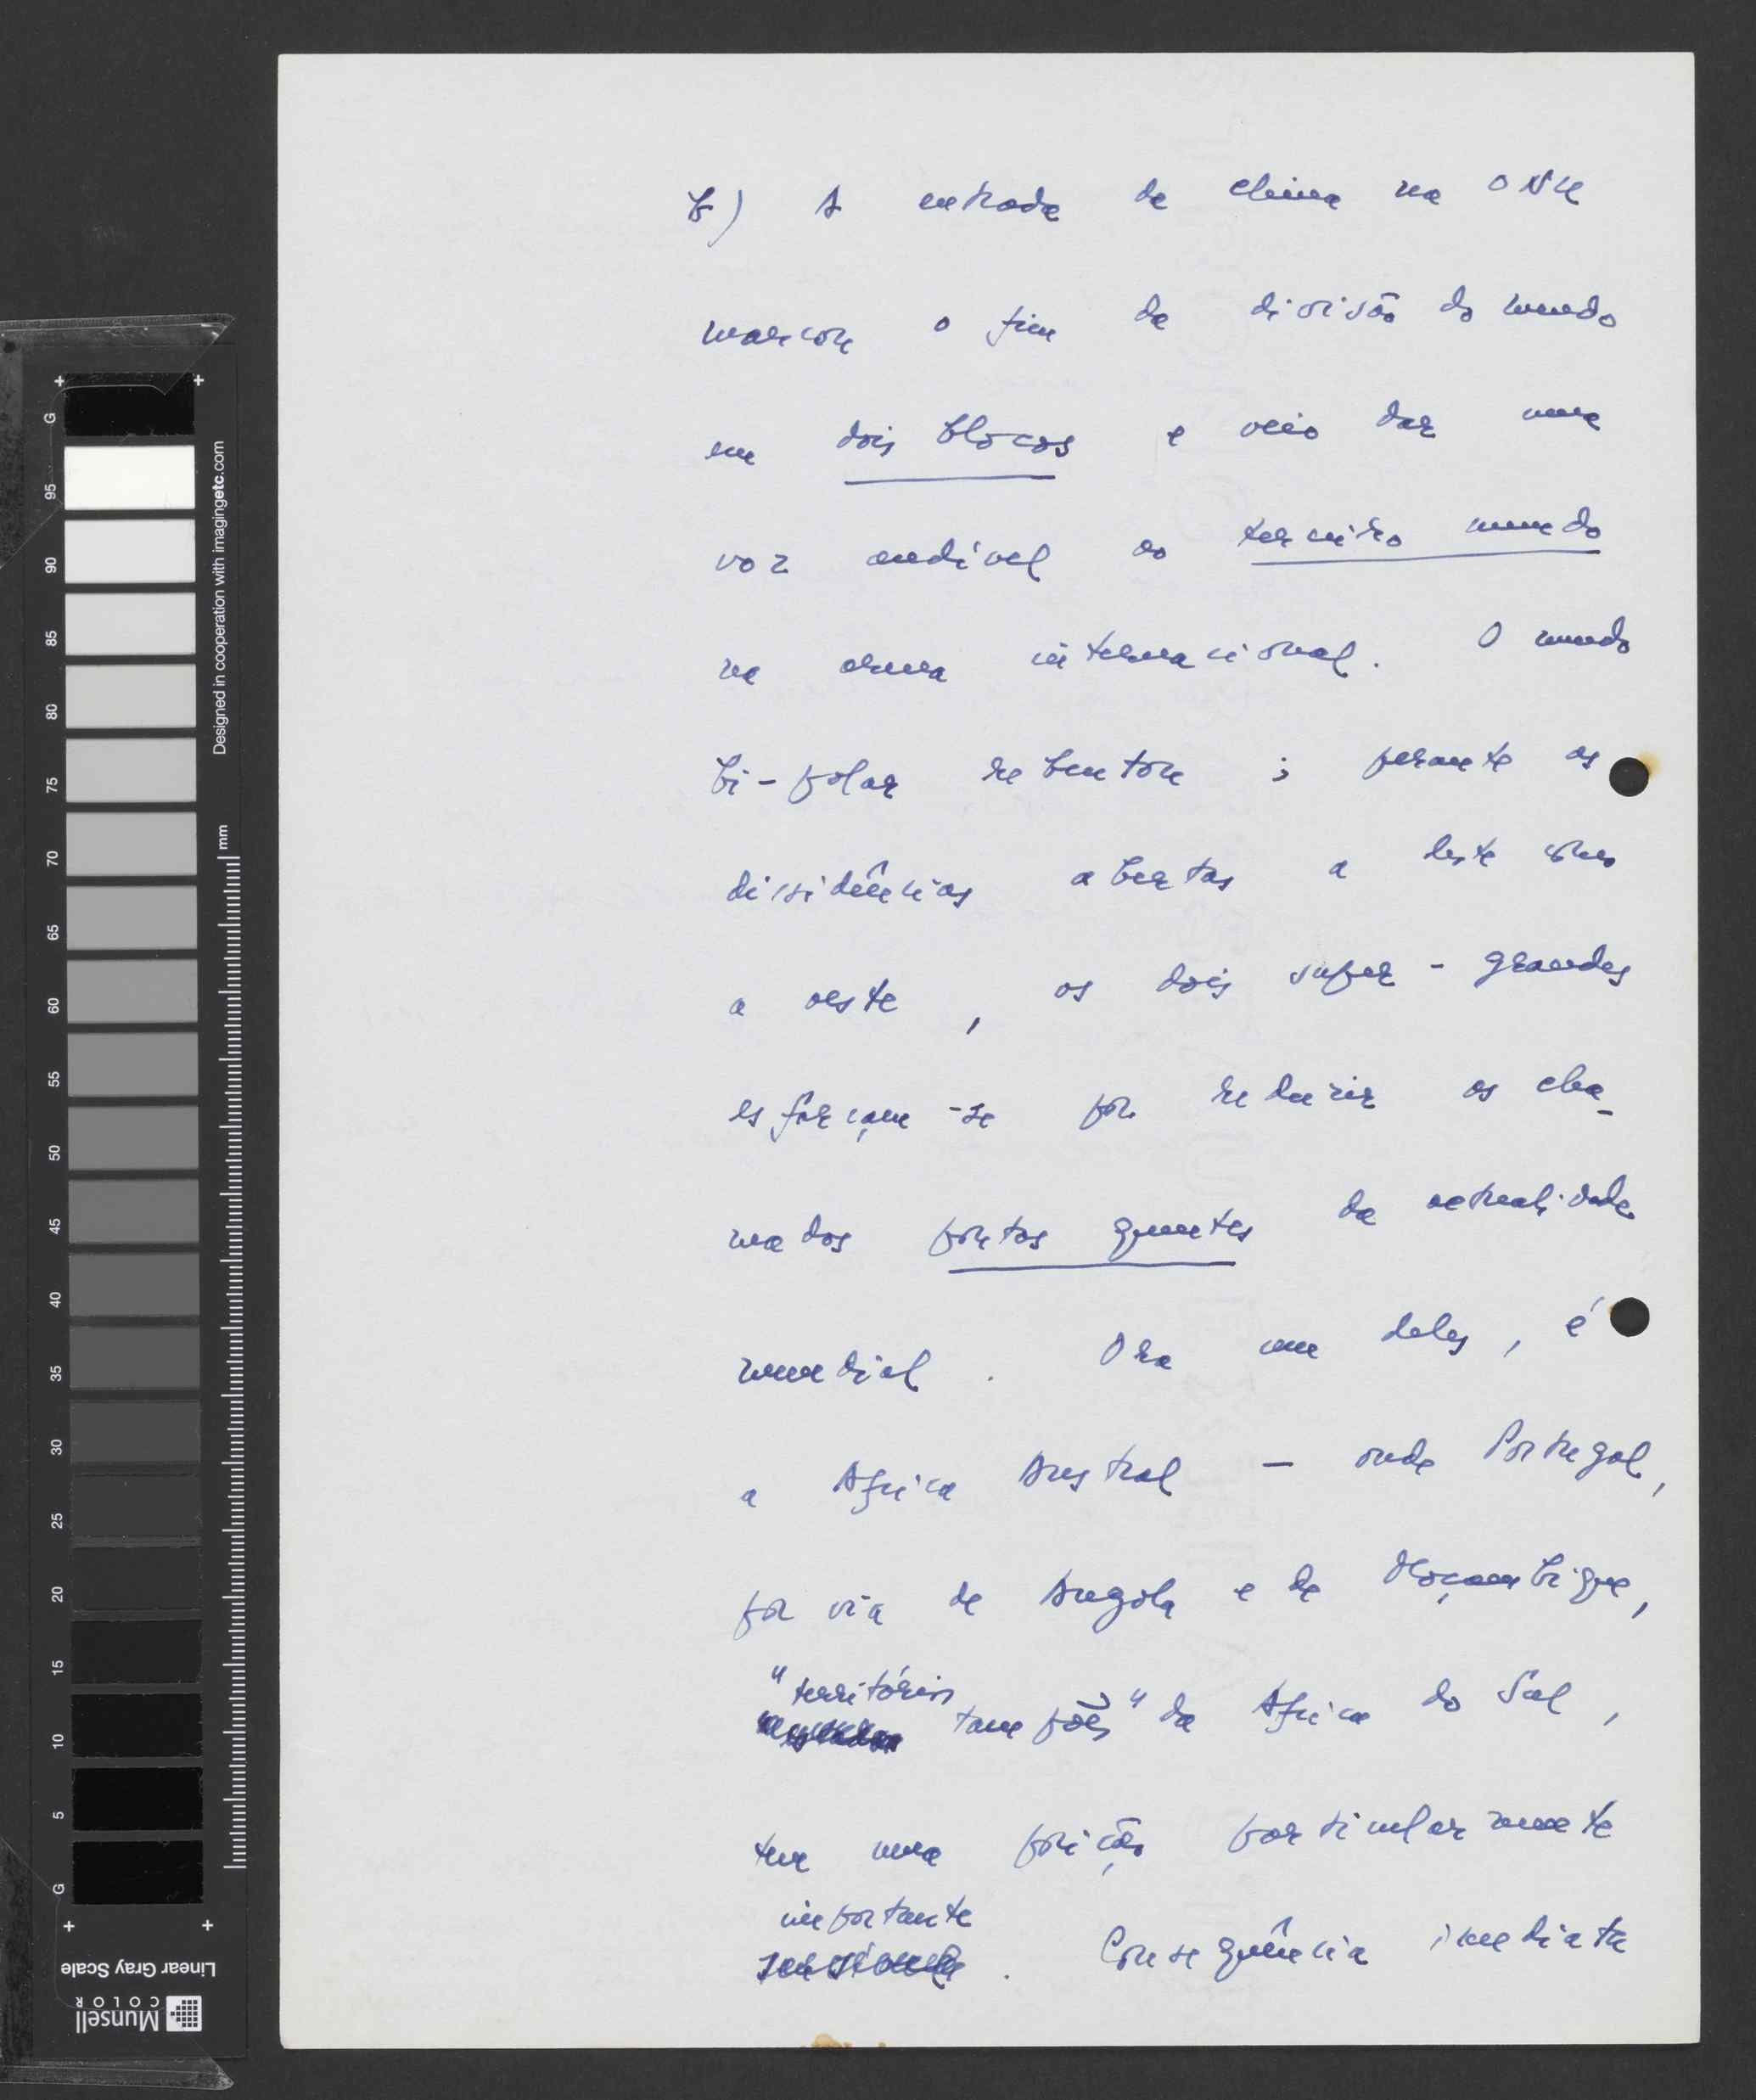 b) A entrada da China na ONU
marcou o fim da divisão do mundo
em dois blocos e veio dar uma
voz audível ao terceiro mundo
na arena internacional. O mundo
bi-polar rebentou ; perante as
dissidências abertas a leste como
a oeste , os dois super-grandes
esforçam-se por reduzir os cha-
mados pontos quentes da actualidade
mundial . Ora um deles , é
a Africa Austral — onde Portugal,
por via de Angola e de Moçambique,
"territórios
tampões" da Africa do Sul ,
tem uma posição particularmente
importante
sensível . Consequência imediata
Designed in cooperation with imagingetc.com
mm
G 95 90 85 80 75 70 65 60 55 50 45 40 35 30 25 20 15 10 5 G
Linear Gray Scale
Munsell
COLOR